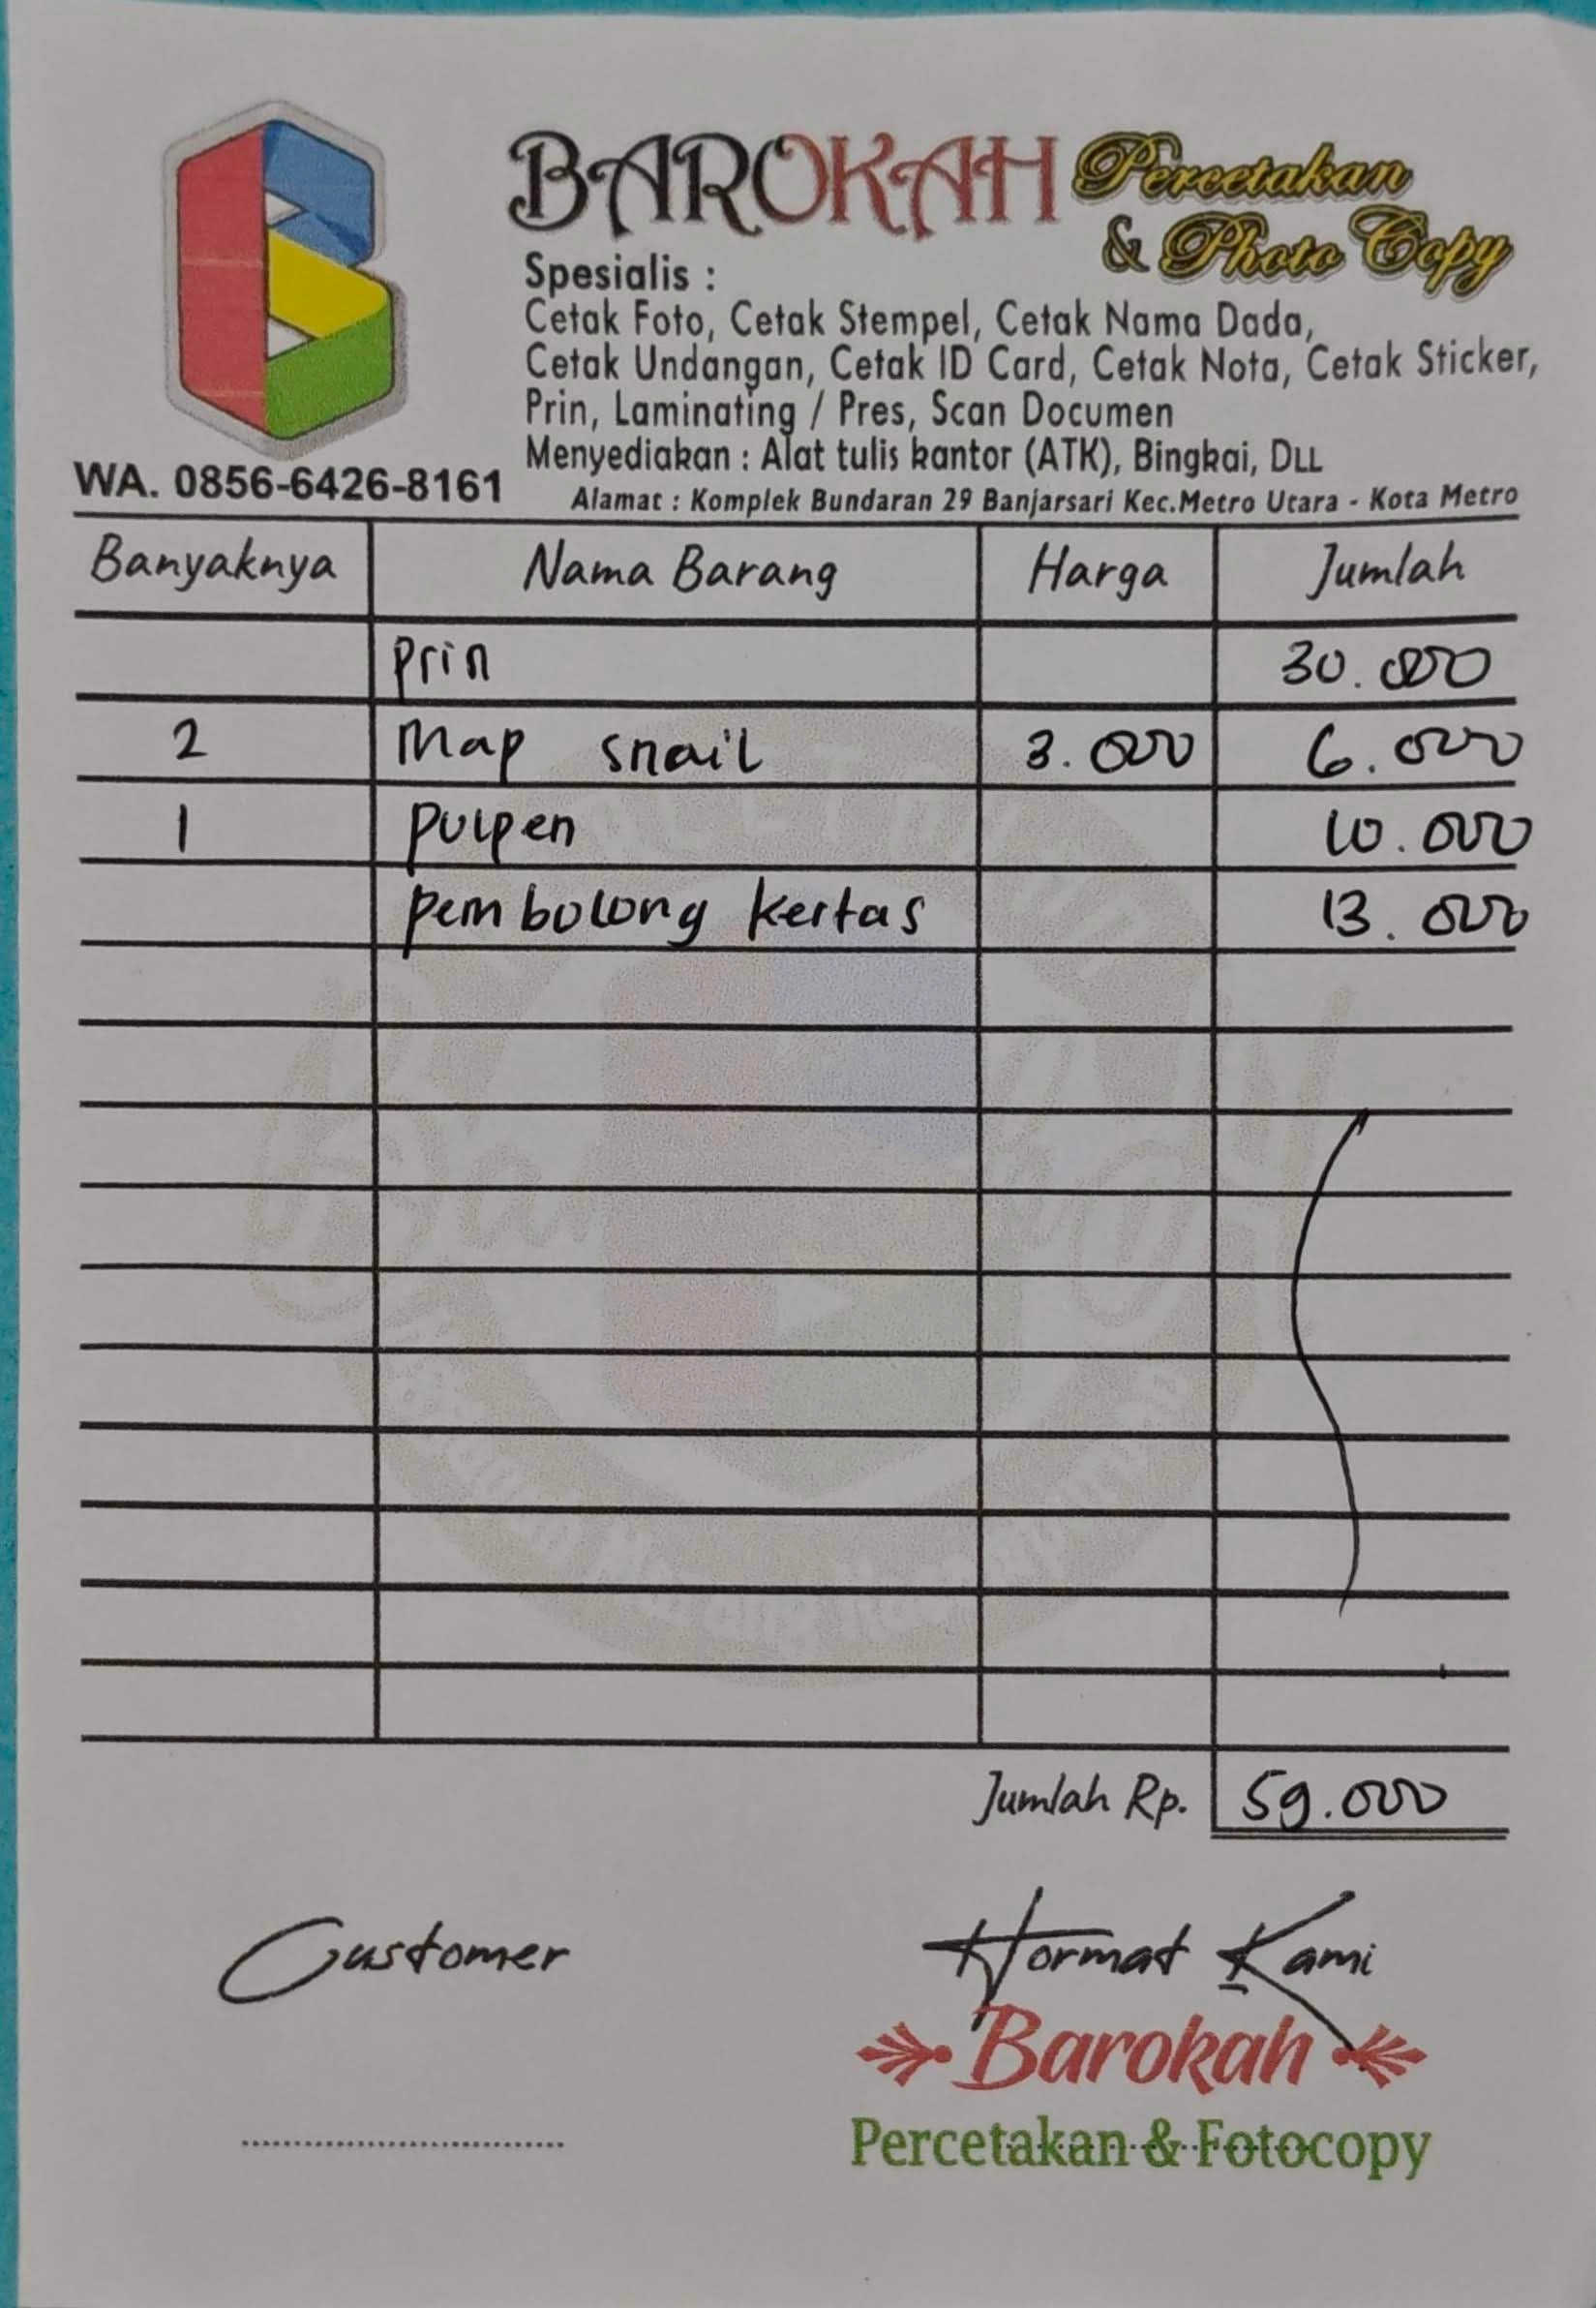 BAROKAH Percetakan
& Photo Copy
Spesialis :
Cetak Foto, Cetak Stempel, Cetak Nama Dada,
Cetak Undangan, Cetak ID Card, Cetak Nota, Cetak Sticker,
Prin, Laminating / Pres, Scan Documen
Menyediakan : Alat tulis kantor (ATK), Bingkai, DLL
WA. 0856-6426-8161
Alamat : Komplek Bundaran 29 Banjarsari Kec.Metro Utara - Kota Metro
Banyaknya Nama Barang Harga Jumlah
Prin 30.000
2 Map snail 3.000 6.000
1 Pulpen 10.000
pembolong kertas 13.000
Jumlah Rp. 59.000
Customer Hormat Kami
Barokah
Percetakan & Fotocopy